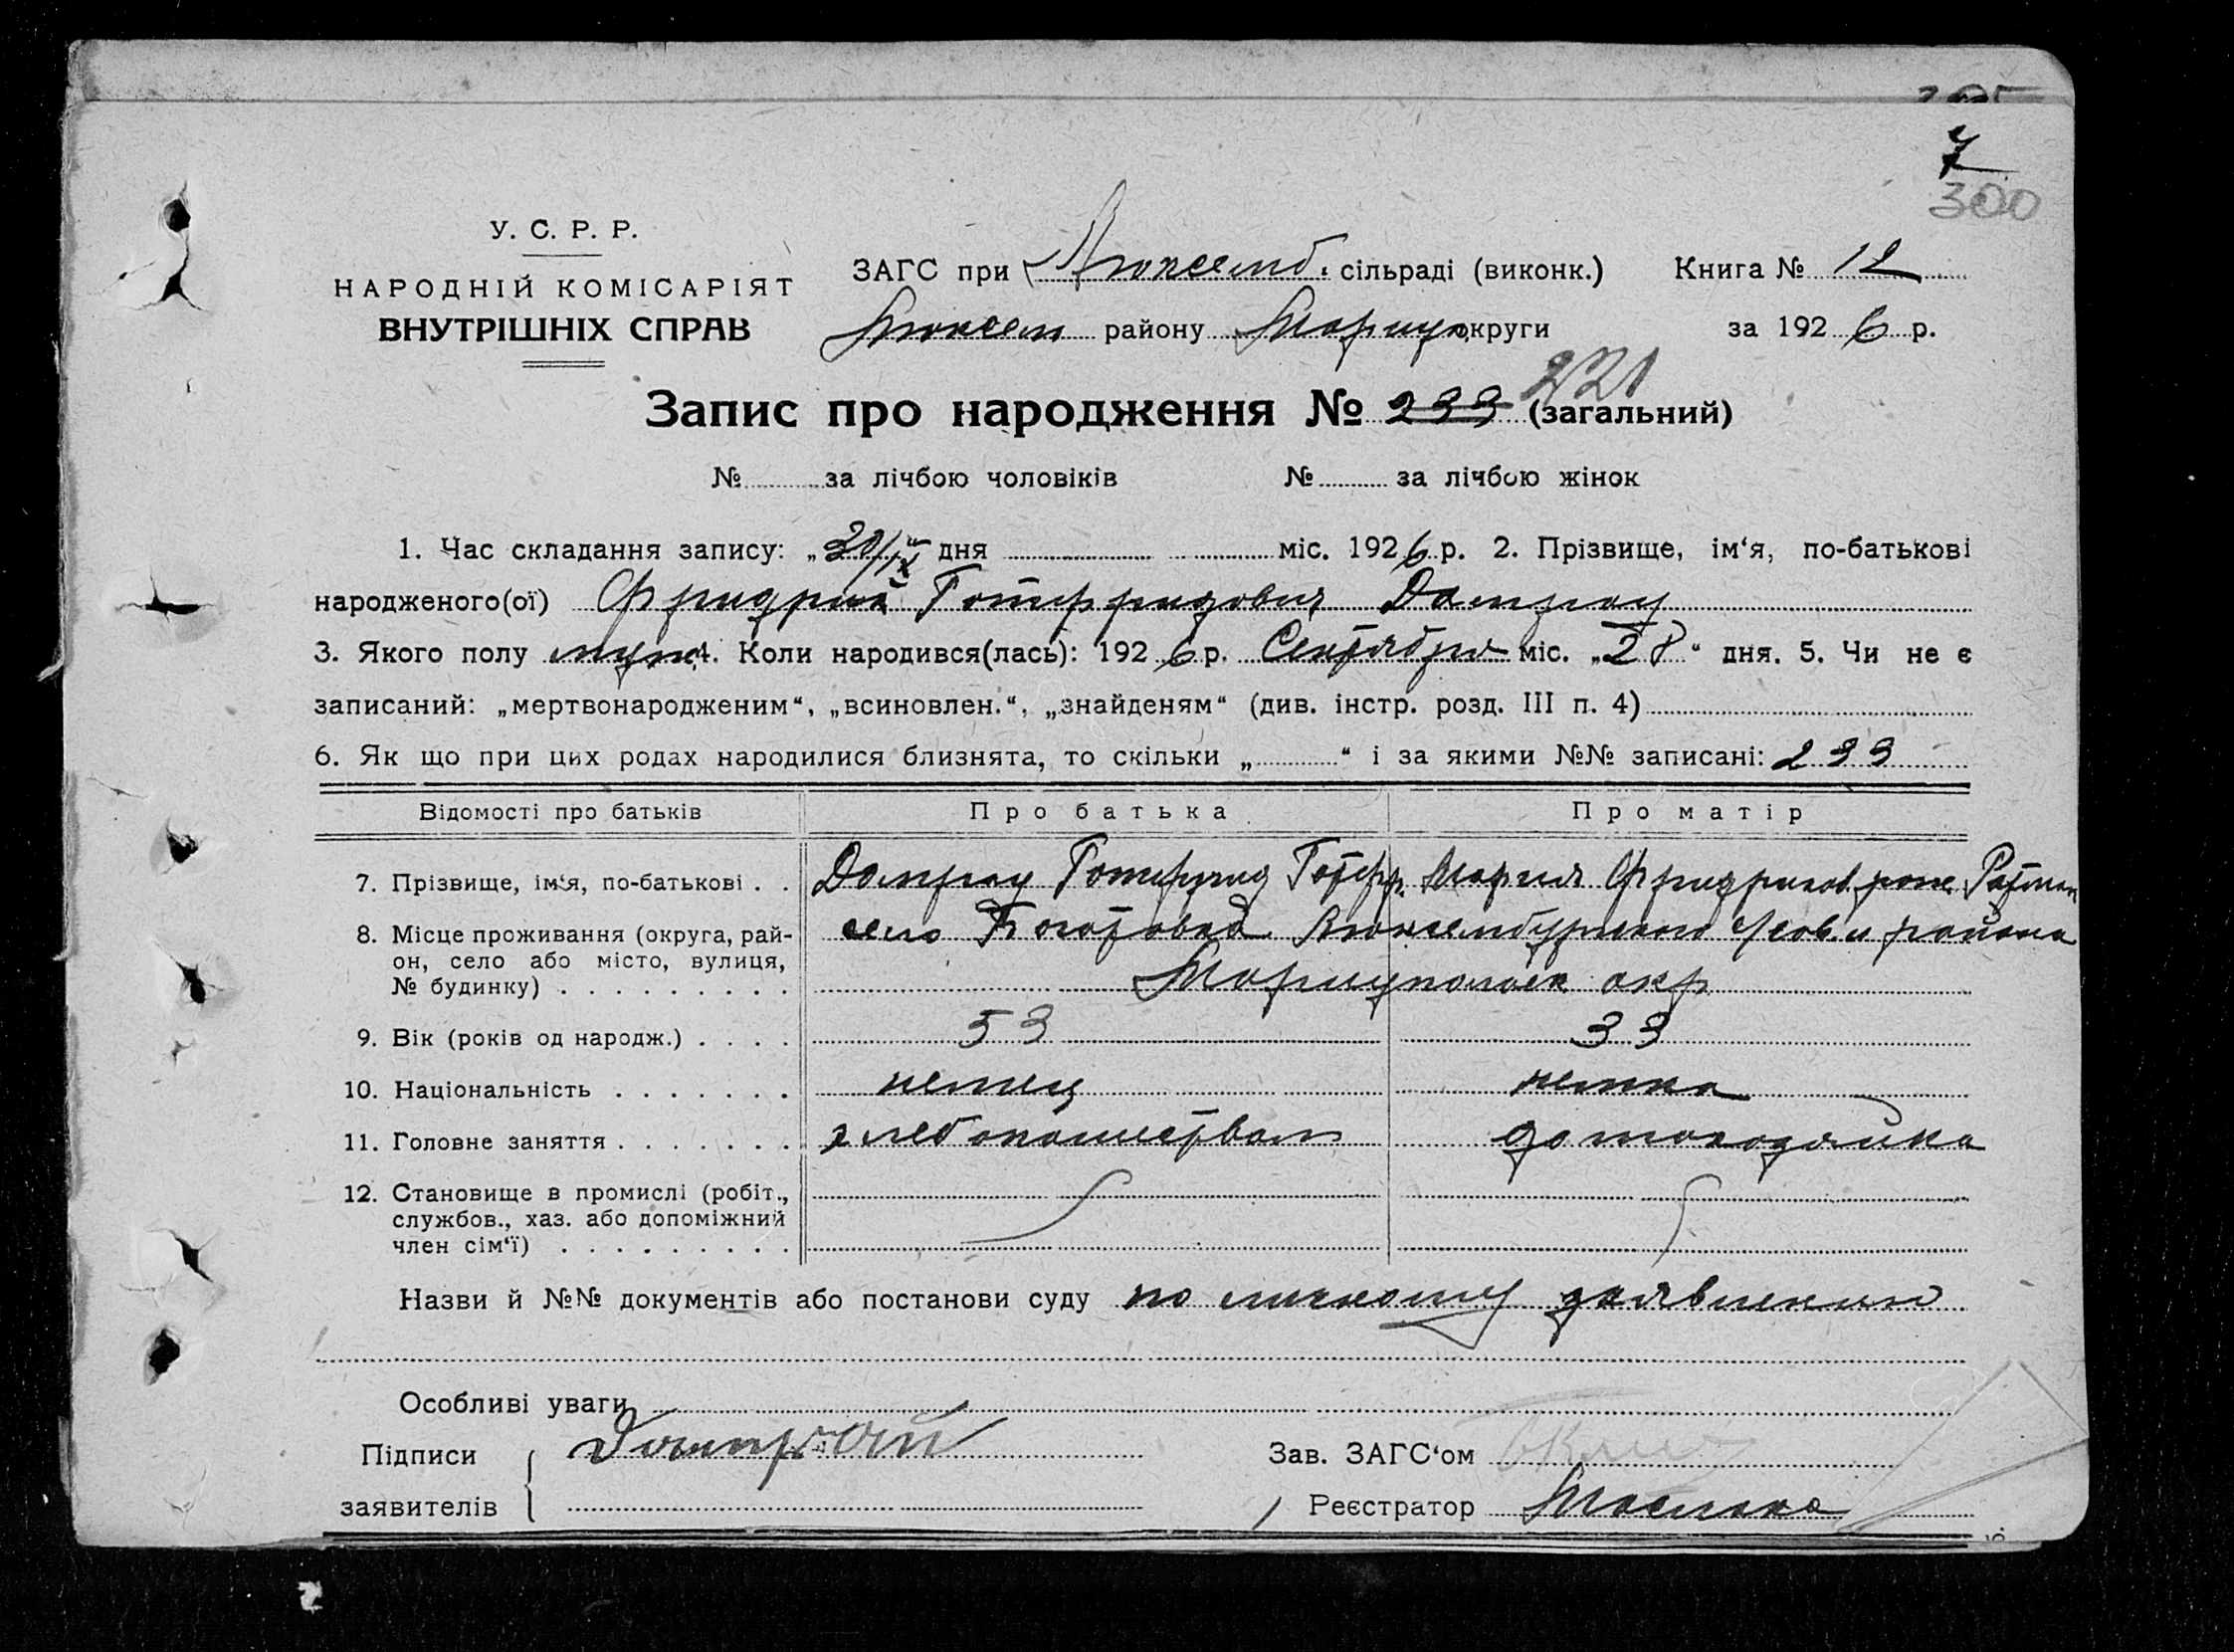 7
300
У. С. Р. Р.
НАРОДНІЙ КОМІСАРІЯТ
ВНУТРІШНІХ СПРАВ
ЗАГС при Люксемб. сільраді (виконк.) Книга № 12
Люксем району Мариуп округи за 1926 р.
Запис про народження № 233 221 (загальний)
№ за лічбою чоловіків № за лічбою жінок
1. Час складання запису: „30/IX“ дня міс. 1926 р. 2. Прізвище, ім‘я, по-батькові
народженого(ої) Фридрих Готфридович Дампрау
3. Якого полу муж. 4. Коли народився(лась): 1926 р. Сентября міс. „28“ дня. 5. Чи не є
записаний: „мертвонародженим“, „всиновлен.“, „знайденям“ (див. інстр. розд. III п. 4)
6. Як що при цих родах народилися близнята, то скільки „ “ і за якими №№ записані: 233
Відомості про батьків Про батька Про матір
7. Прізвище, ім‘я, по-батькові . . Дампрау Готфрид Готфр. Мария Фридрихов.
8. Місце проживання (округа, рай-
он, село або місто, вулиця,
№ будинку) . . . . . . . . . село Люксембургского района
Мариупольск окр
9. Вік (років од народж.) . . . . 53 33
10. Національність . . . . . . . немец немка
11. Головне заняття . . . . . . . хлебопашество домохозяйка
12. Становище в промислі (робіт.,
службов., хаз. або допоміжний
член сім‘ї) . . . . . . . . .
Назви й №№ документів або постанови суду по личному заявлению
Особливі уваги
Підписи
заявителів
Дампрау
Зав. ЗАГС‘ом
Реєстратор